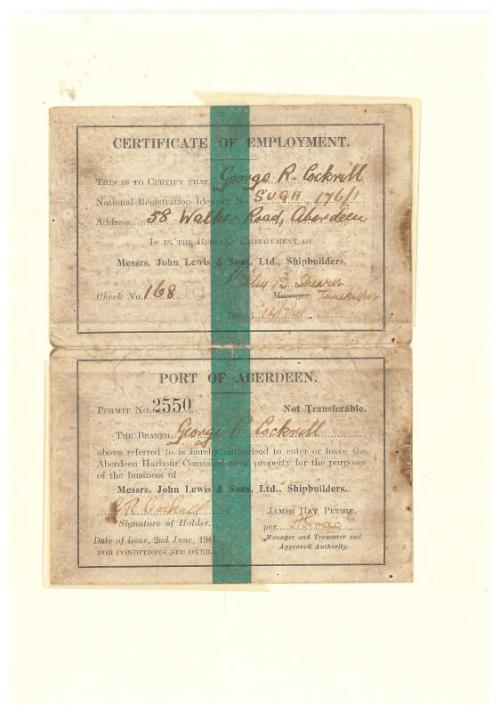 CERTIFICATE OF EMPLOYMENT.
THIS IS TO CERTIFY THAT George R. Cockrill
National Registration Identity No. SUGA 176/1
Address 58 Walker Road, Aberdeen
IS IN THE REGULAR EMPLOYMENT OF
Messrs. John Lewis & Sons, Ltd., Shipbuilders.
B. Shearer
Check No. 168 Manager Timekeeper
Date
PORT OF ABERDEEN.
PERMIT No. 2550 Not Transferable.
THE BEARER George R. Cockrill
above referred to is hereby authorised to enter or leave the
Aberdeen Harbour Commissioners' property for the purposes
of the business of
Messrs. John Lewis & Sons, Ltd., Shipbuilders.
G.R. Cockrill JAMES HAY PETRIE,
Signature of Holder. per
Manager and Treasurer and
Date of Issue, 2nd June, Approved Authority.
FOR CONDITIONS SEE OVER.